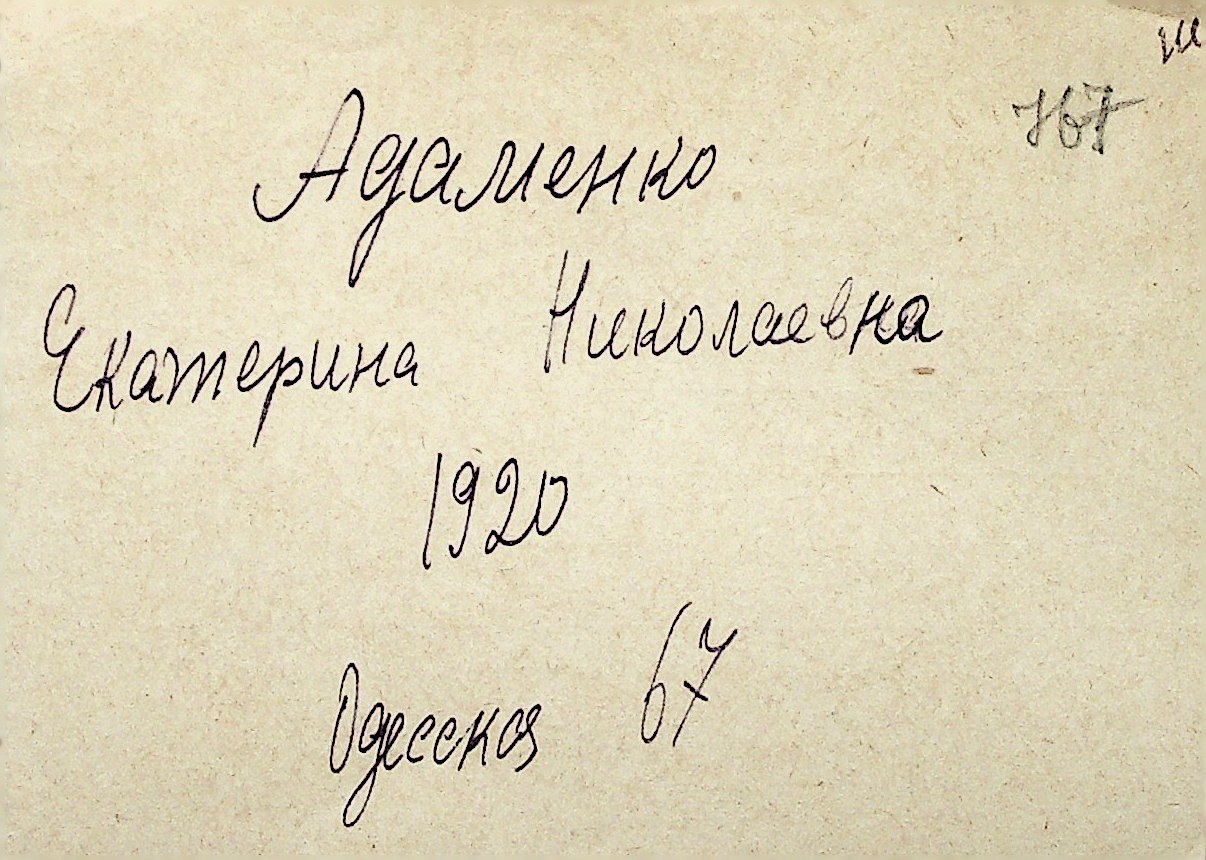 767
Адаменко
Екатерина Николаевна
1920
Одесская 67